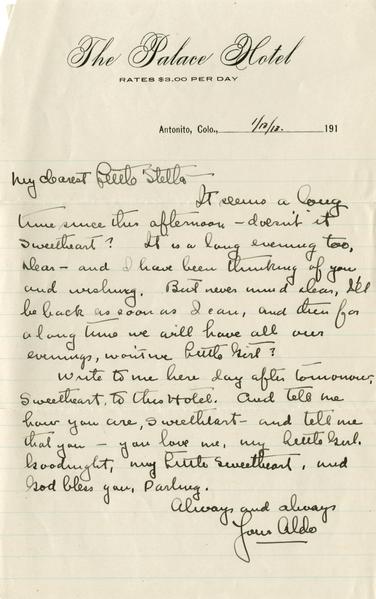 The Palace Hotel
RATES $3.00 PER DAY
Antonito, Colo., 1/12/12. 191
My dearest Little Stella
It seems a long
time since this afternoon - doesn't it
Sweetheart? It is a long evening too,
dear - and I have been thinking of you
and wishing. But never mind dear, I'll
be back as soon as I can, and then for
a long time we will have all our
evenings, won't we Little Girl?
Write to me here day after tomorrow,
Sweetheart, to this Hotel. And tell me
how you are, Sweetheart - and tell me
that you - you love me, my Little Girl.
Goodnight, my Little Sweetheart, and
God bless you, Darling.
Always and always
Your Aldo